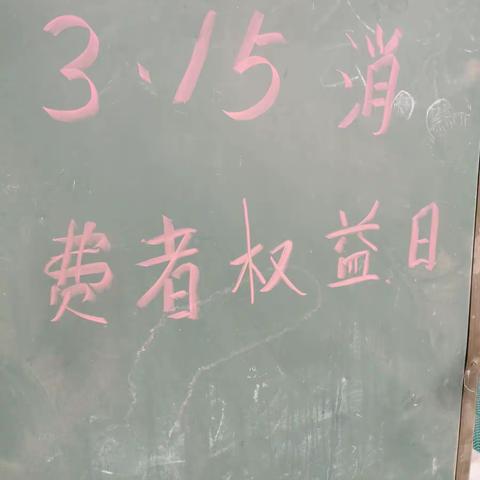 3、15消
费者权益日